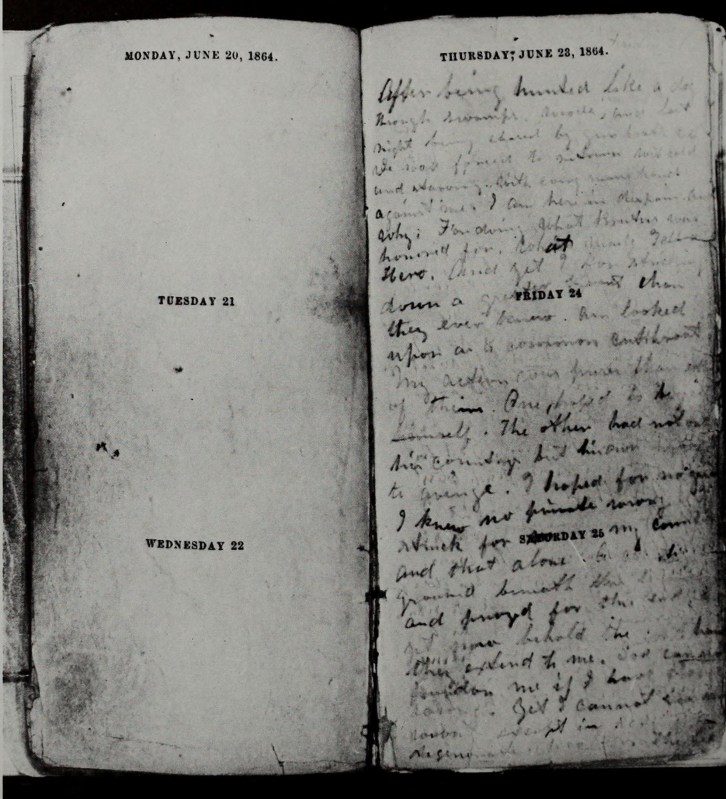 MONDAY, JUNE 20, 1864.
TUESDAY 21
WEDNESDAY 22
THURSDAY, JUNE 23, 1864.
After being hunted like a dog
through swamps, woods, and last
night being chased by gun boats
we was forced to return wet cold
and starving. With every mans hand
against me, I am here in despair. And
why; For doing what Brutus was
honored for, what made Tell a
Hero. And yet I for striking
down a greater tyrant than
FRIDAY 24
they ever knew. Am looked
upon as a common cutthroat
My action was purer than
of theirs. One, hoped to be
himself. The other had not
his country's but his own
to avenge. I hoped for no
I knew no private wrong. I
SATURDAY 25
struck for my country
and that alone.
ground beneath this
and prayed for this end,
yet now behold the
they extend to me. God cannot
pardon me if I have done
wrong. Yet I cannot see
except in
The